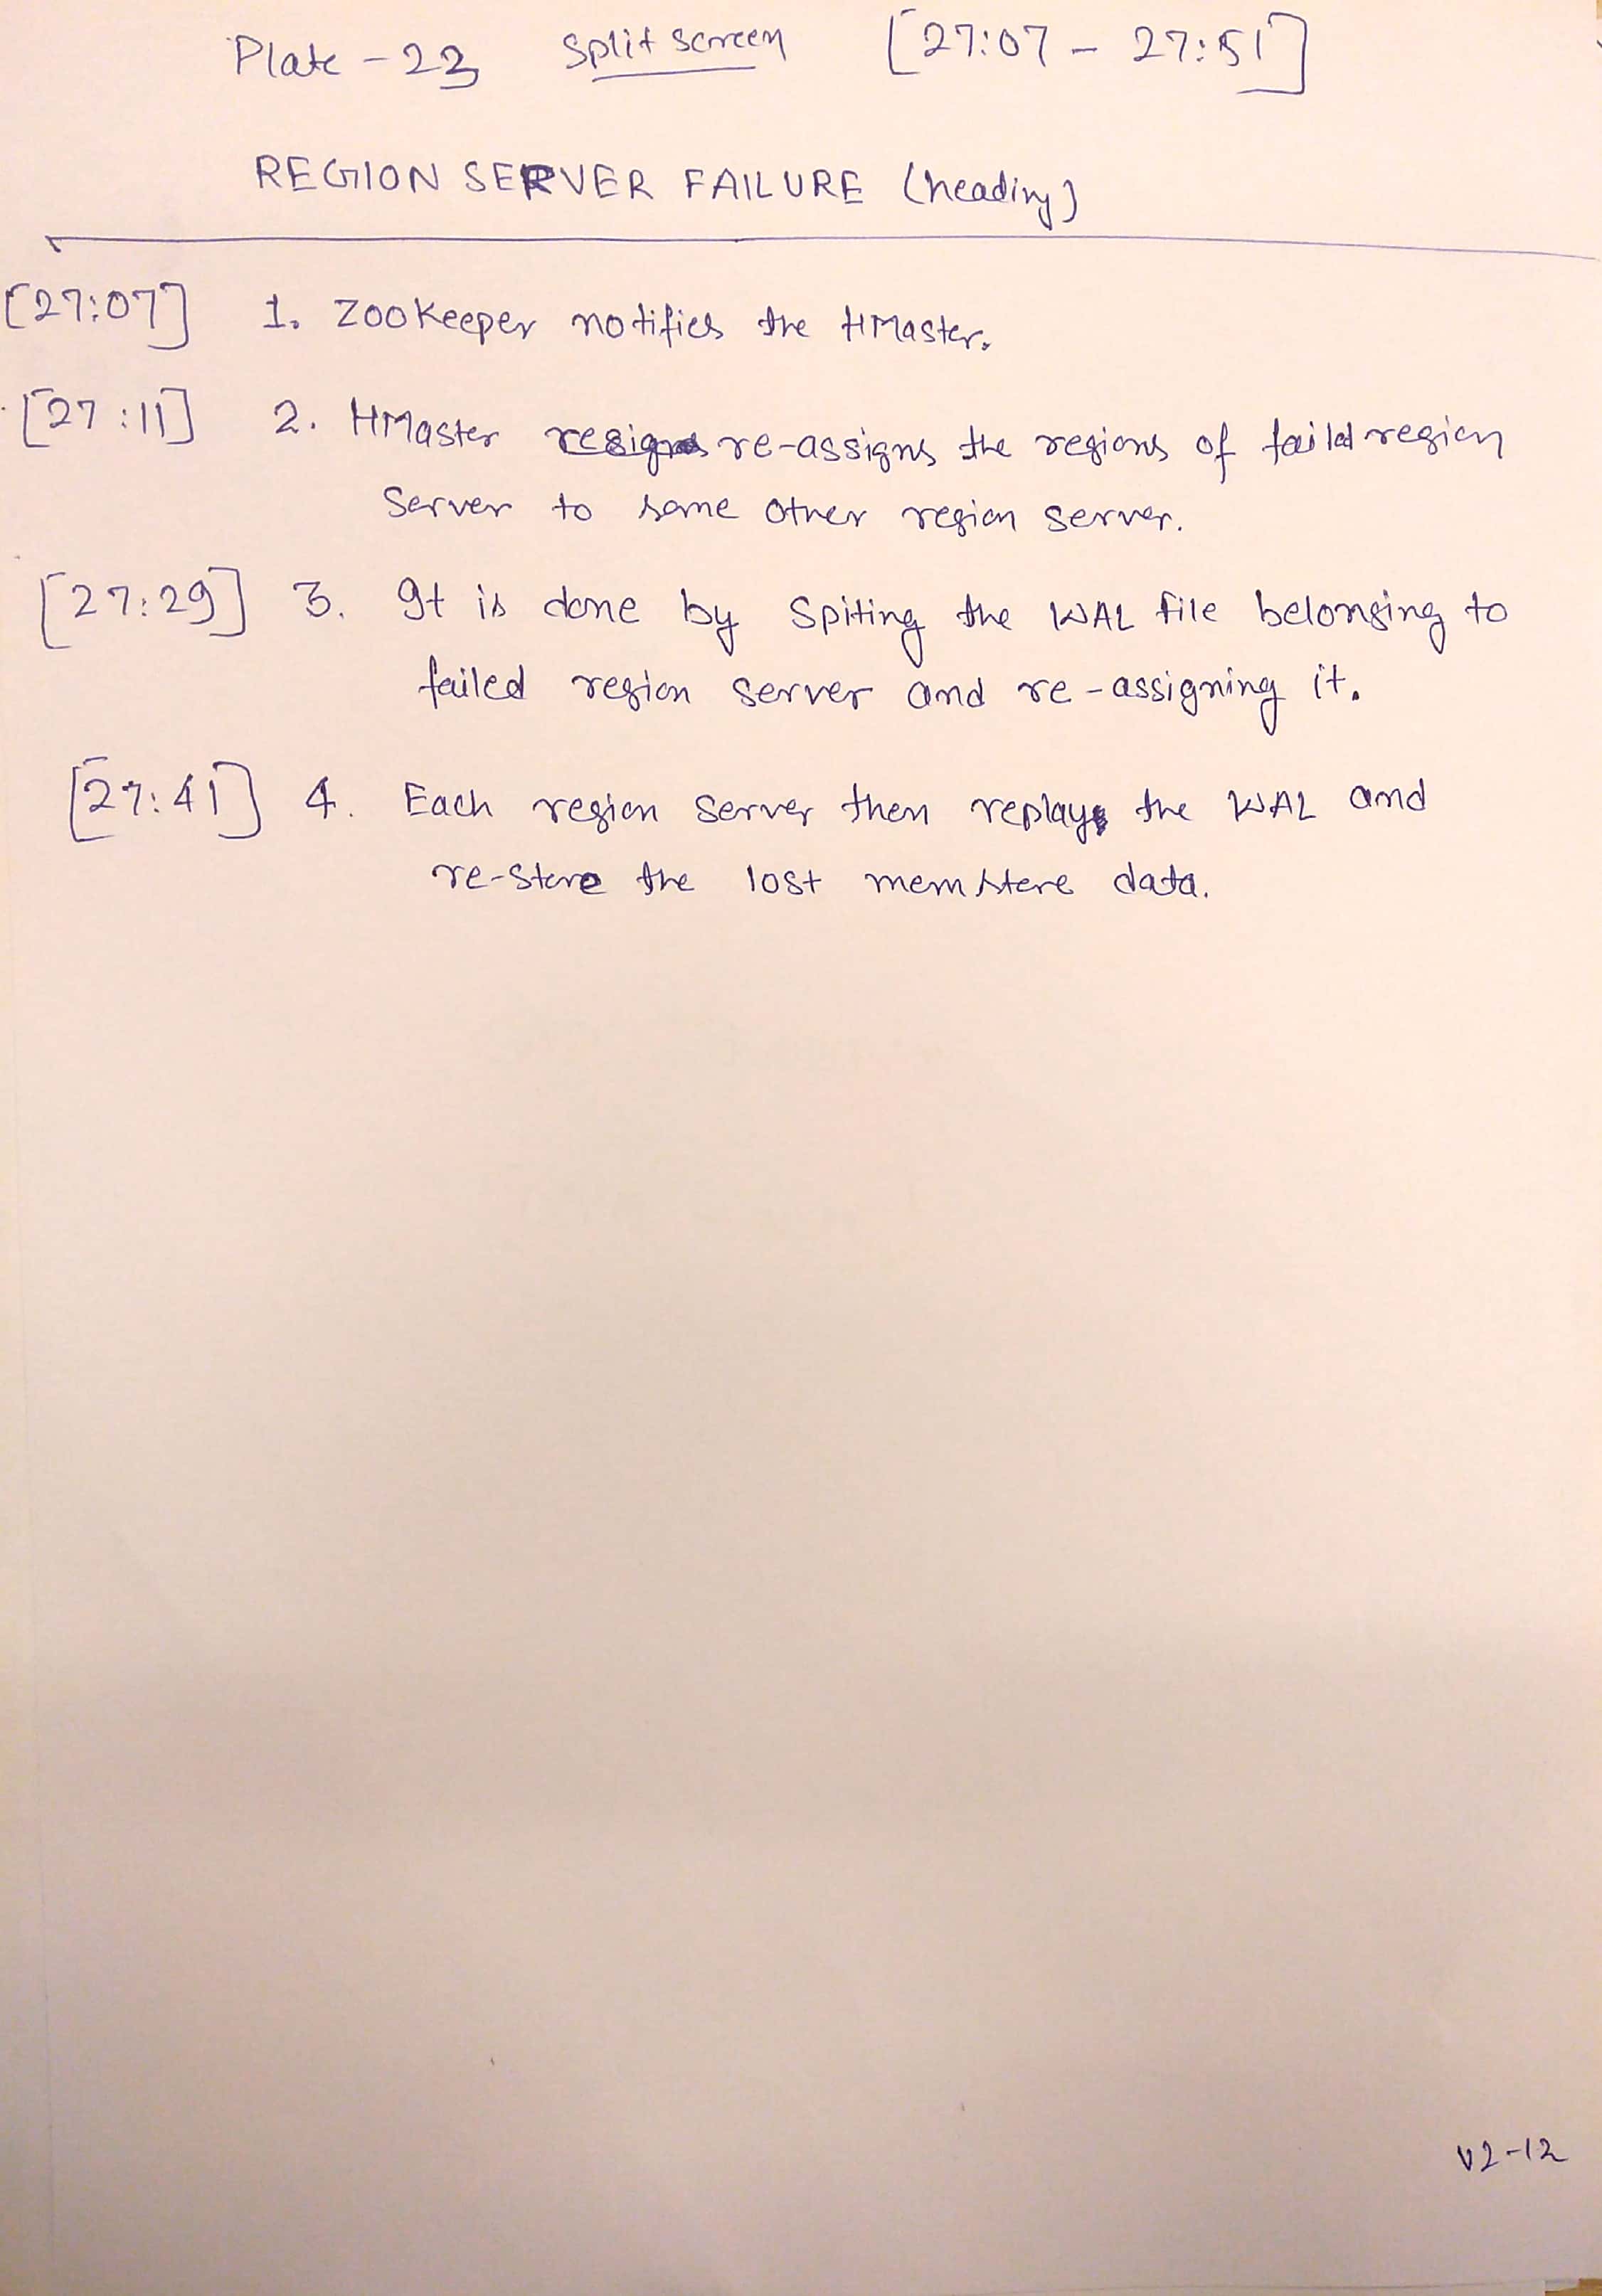 Plate - 23 Split screen [27:07 - 27:51]
REGION SERVER FAILURE (heading)
[27:07] 1. ZooKeeper notifies the HMaster.
[27:11] 2. HMaster re-assigns the regions of faild region
Server to some other region server.
[27:29] 3. It is done by Spiting the WAL file belonging to
failed region server and re-assigning it.
[27:41] 4. Each region server then replays the WAL and
re-store the lost memstore data.
V2-12